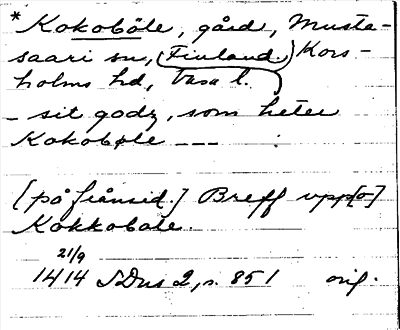 * Kokoböle, gård, Musta-
saari sn, (Finland.) Kors-
holms hd, Vasa l.
– sit godz, som heter
Kokobøle ---
[på frånsid.] Breff vpp[o]
Kokkobole.
21/9
1414 SDns 2, s. 851 orig.